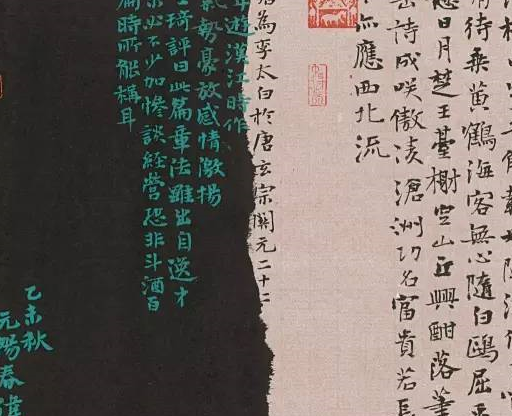 待乘黃鶴海客無心隨白鷗屈
日月楚王臺榭空山丘興酣落筆
詩成咲傲凌滄洲功名富貴若長
亦應西北流
為李太白於唐玄宗開元二十二
遊漢江時作
氣勢豪放感情激揚
琦評曰此篇章法雖出自逸才
必不少加慘談經營恐非斗酒百
時所能稱耳
乙未秋
元暘春